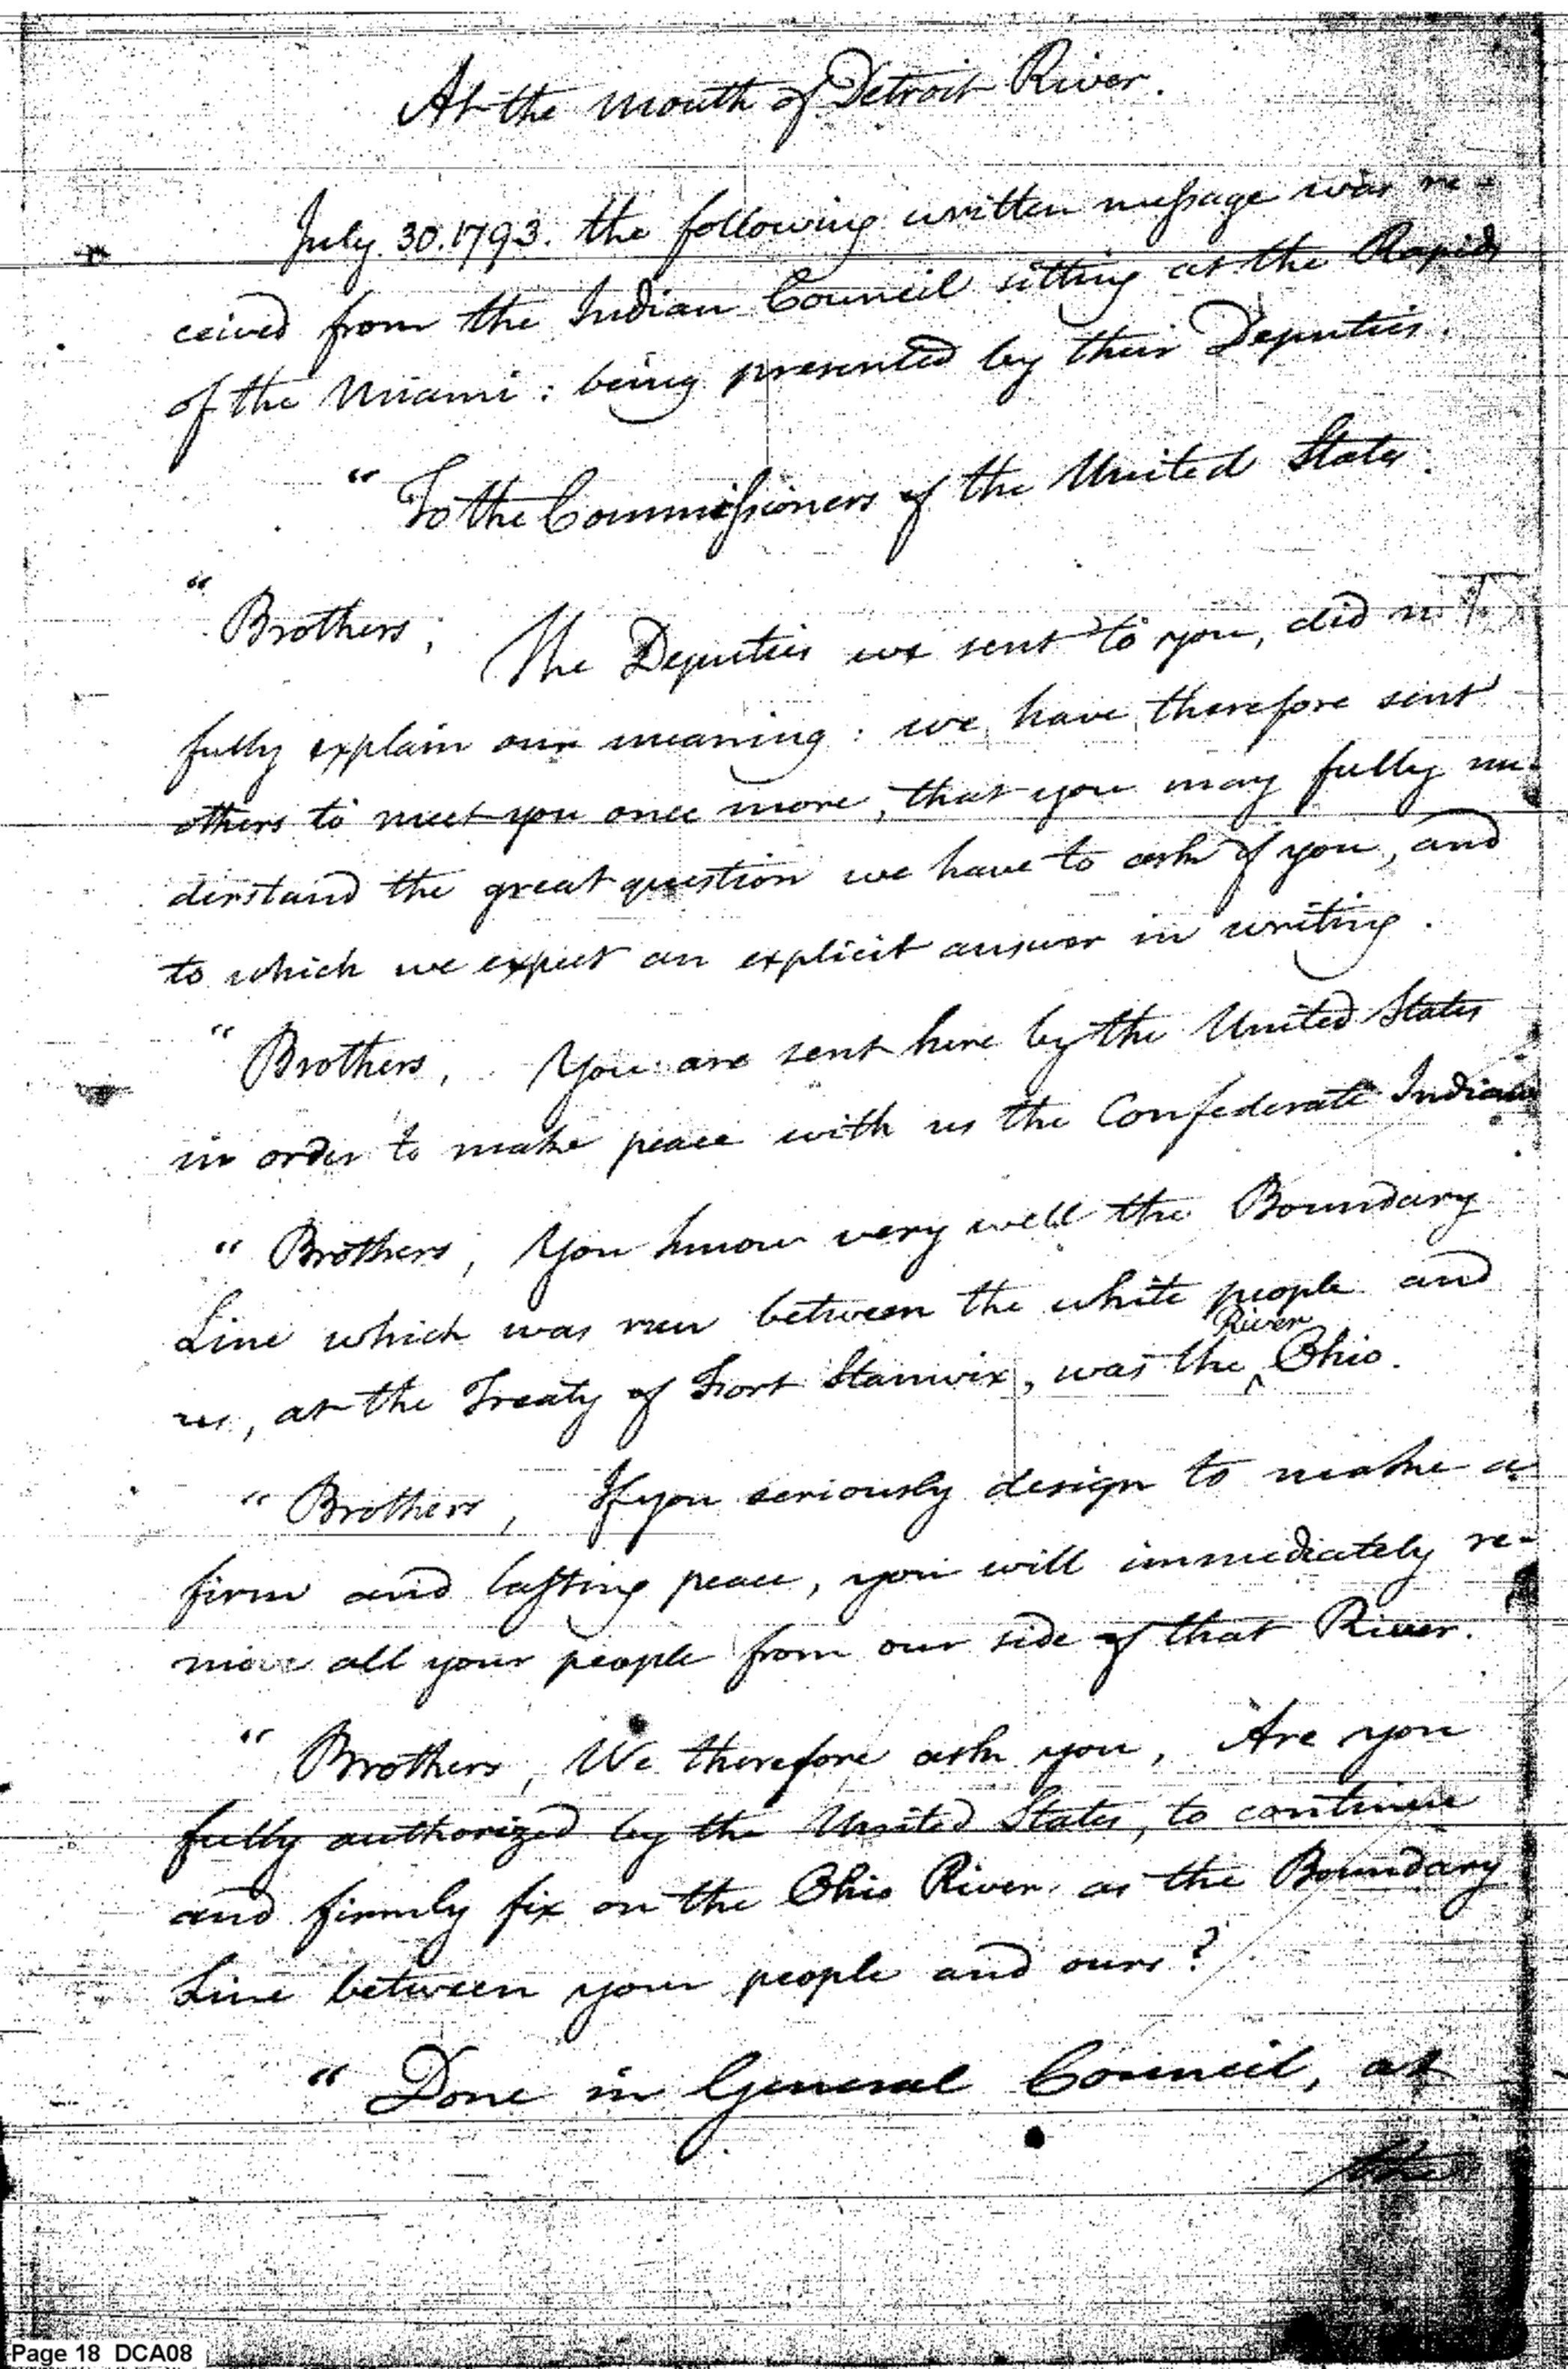 At the mouth of Detroit River.
July 30. 1793. the following written message was re-
ceived from the Indian Council sitting at the Rapids
of the Miami: being presented by their Deputies.
"To the Commissioners of the United States.
"Brothers, The Deputies we sent to you, did not
fully explain our meaning: we have therefore sent
others to meet you once more, that you may fully un-
derstand the great question we have to ask of you, and
to which we expect an explicit answer in writing.
"Brothers, You are sent here by the United States
in order to make peace with us the Confederate Indians
"Brothers, You know very well the Boundary
Line which was run between the white people and
River
us, at the Treaty of Fort Stanwix, was the ^ Ohio.
"Brothers, If you seriously design to make a
firm and lasting peace, you will immediately re-
move all your people from our side of that River.
"Brothers, We therefore ask you, Are you
fully authorized by the United States, to continue
and firmly fix on the Ohio River, as the Boundary
Line between your people and ours?
"Done in General Council, at
the
Page 18 DCA08